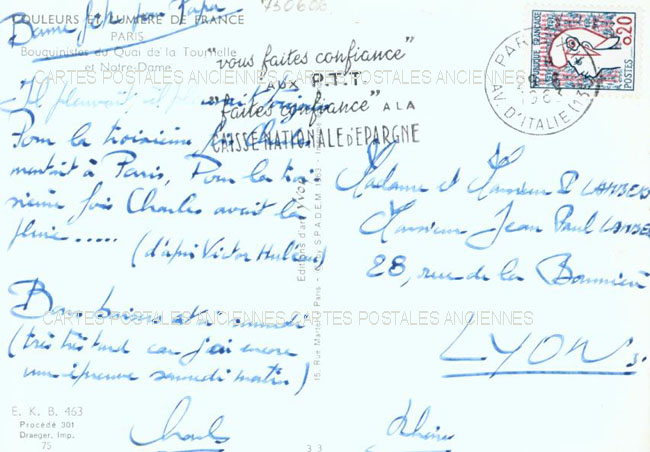 COULEURS ET LUMIÈRE DE FRANCE
PARIS
Bouquinistes du Quai de la Tournelle
et Notre-Dame
Bonne fête pour Papa
730606
"vous faites confiance"
AUX P.T.T
"faites confiance" A LA
CAISSE NATIONALE d'EPARGNE
PARIS
AV. D'ITALIE (13e)
REPUBLIQUE FRANÇAISE
0,20
POSTES
CARTES POSTALES ANCIENNES CARTES POSTALES ANCIENNES
Il pleuvait, il pleuvait
Pour la troisième fois Charles
mentait à Paris, Pour la troi
sième fois Charles avait la
pluie .....
(d'après Victor Hulleau)
Bons baisers et à samedi
(très très tard car j'ai encore
une épreuve samedi matin)
Charles
CARTES POSTALES ANCIENNES CARTES POSTALES ANCIENNES
Madame et Monsieur P LAMBERT
Monsieur Jean Paul LAMBERT
28, rue de la
LYON 3.
Rhône
Editions d'art YVON
SPADEM
15, Rue Martel, Paris
E. K. B. 463
Procédé 301
Draeger, Imp.
75
33